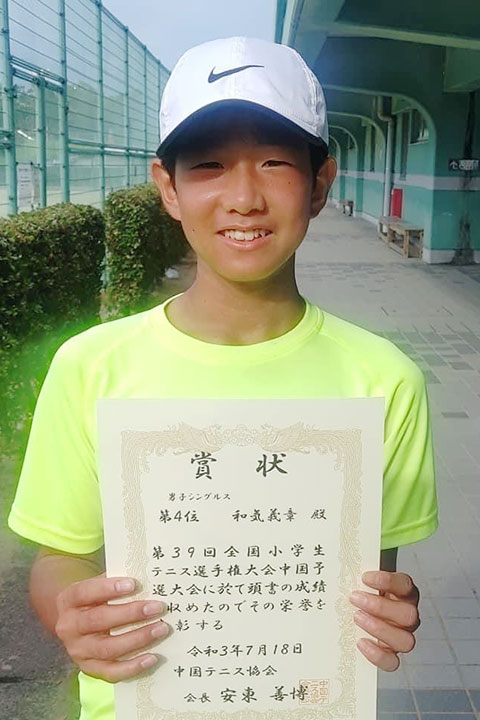 賞状
男子シングルス
第4位 和気義章 殿
第39回全国小学生
テニス選手権大会中国予
選大会に於て頭書の成績
収めたのでその栄誉を
彰する
令和3年7月18日
中国テニス協会
会長 安東善博